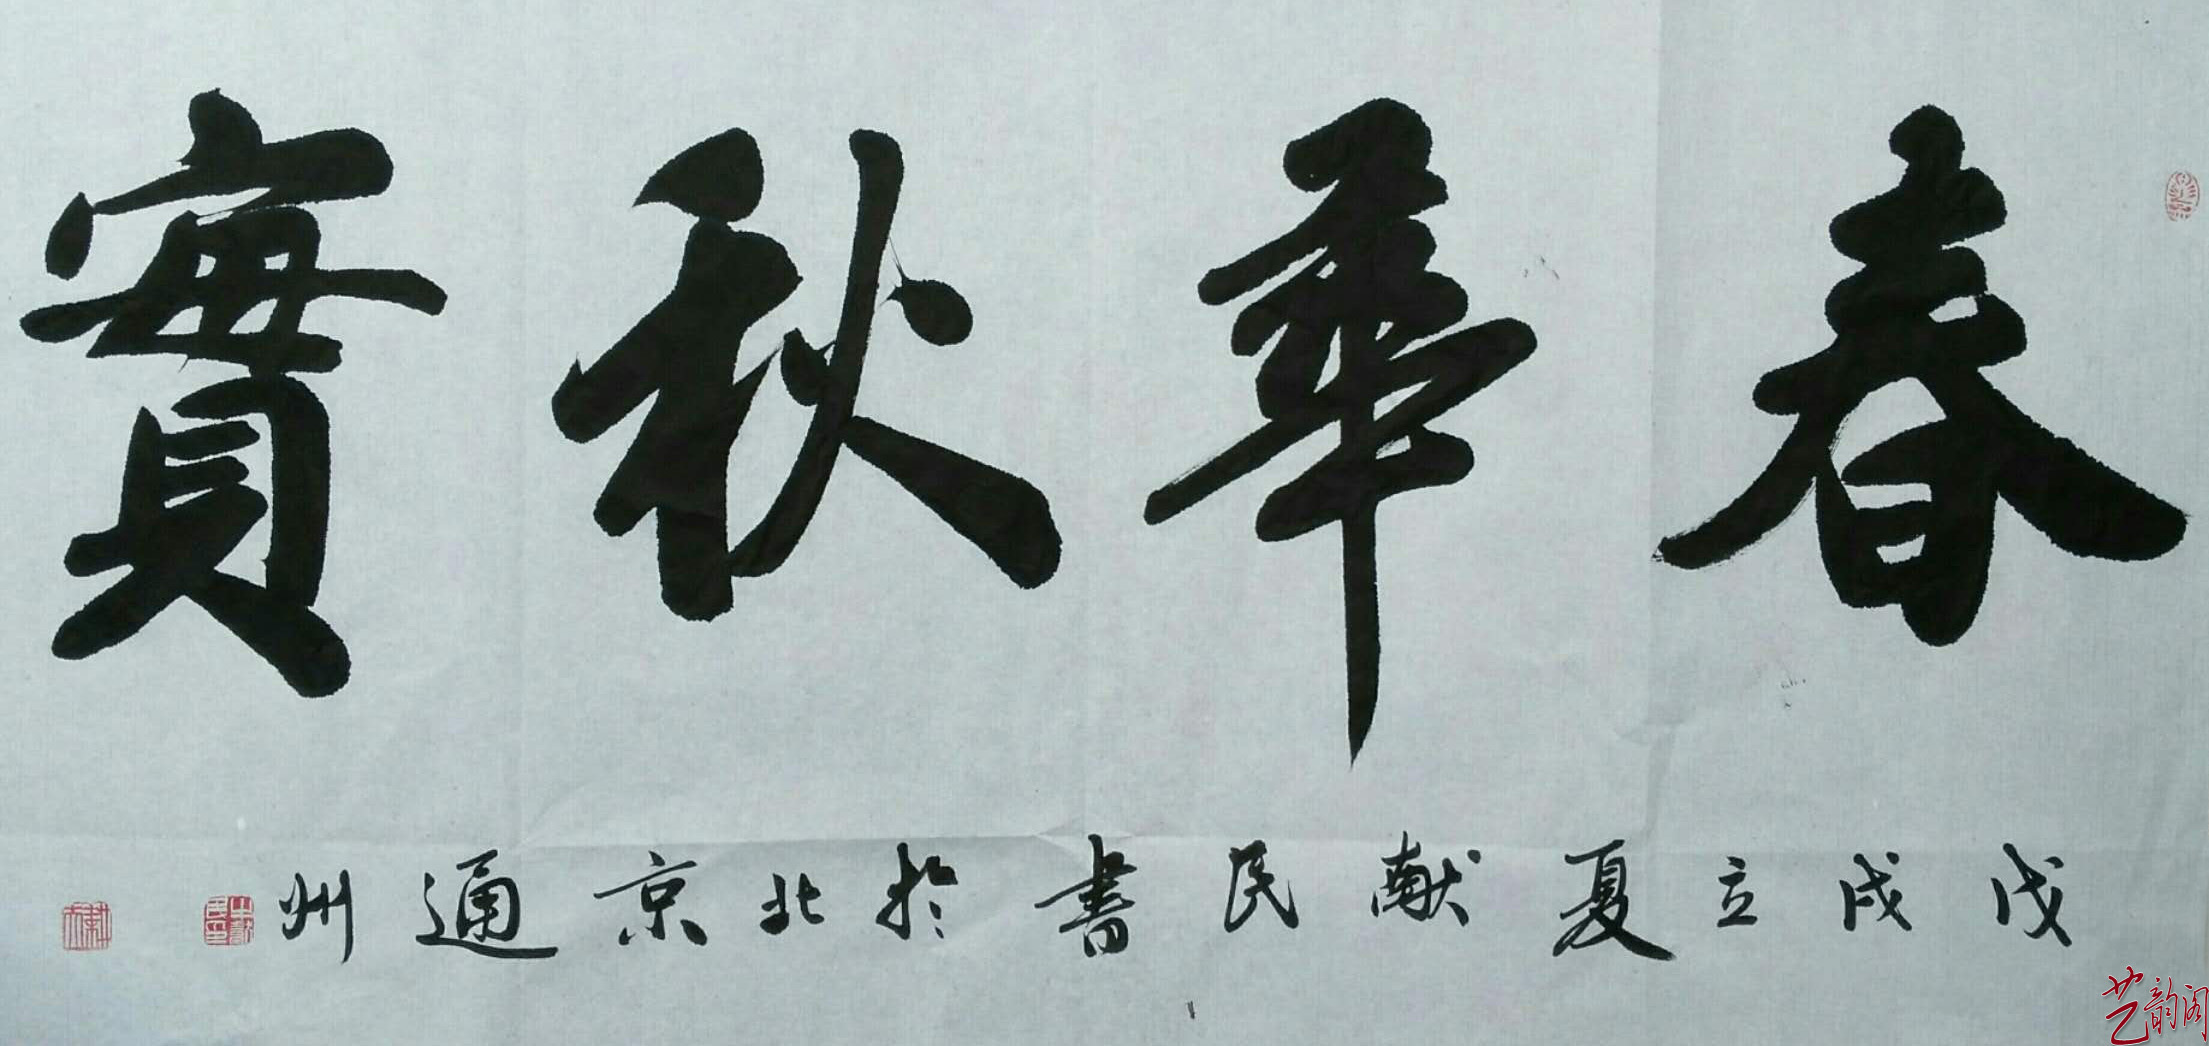 春華秋實
戊戌立夏献民書於北京通州
艺韵阁